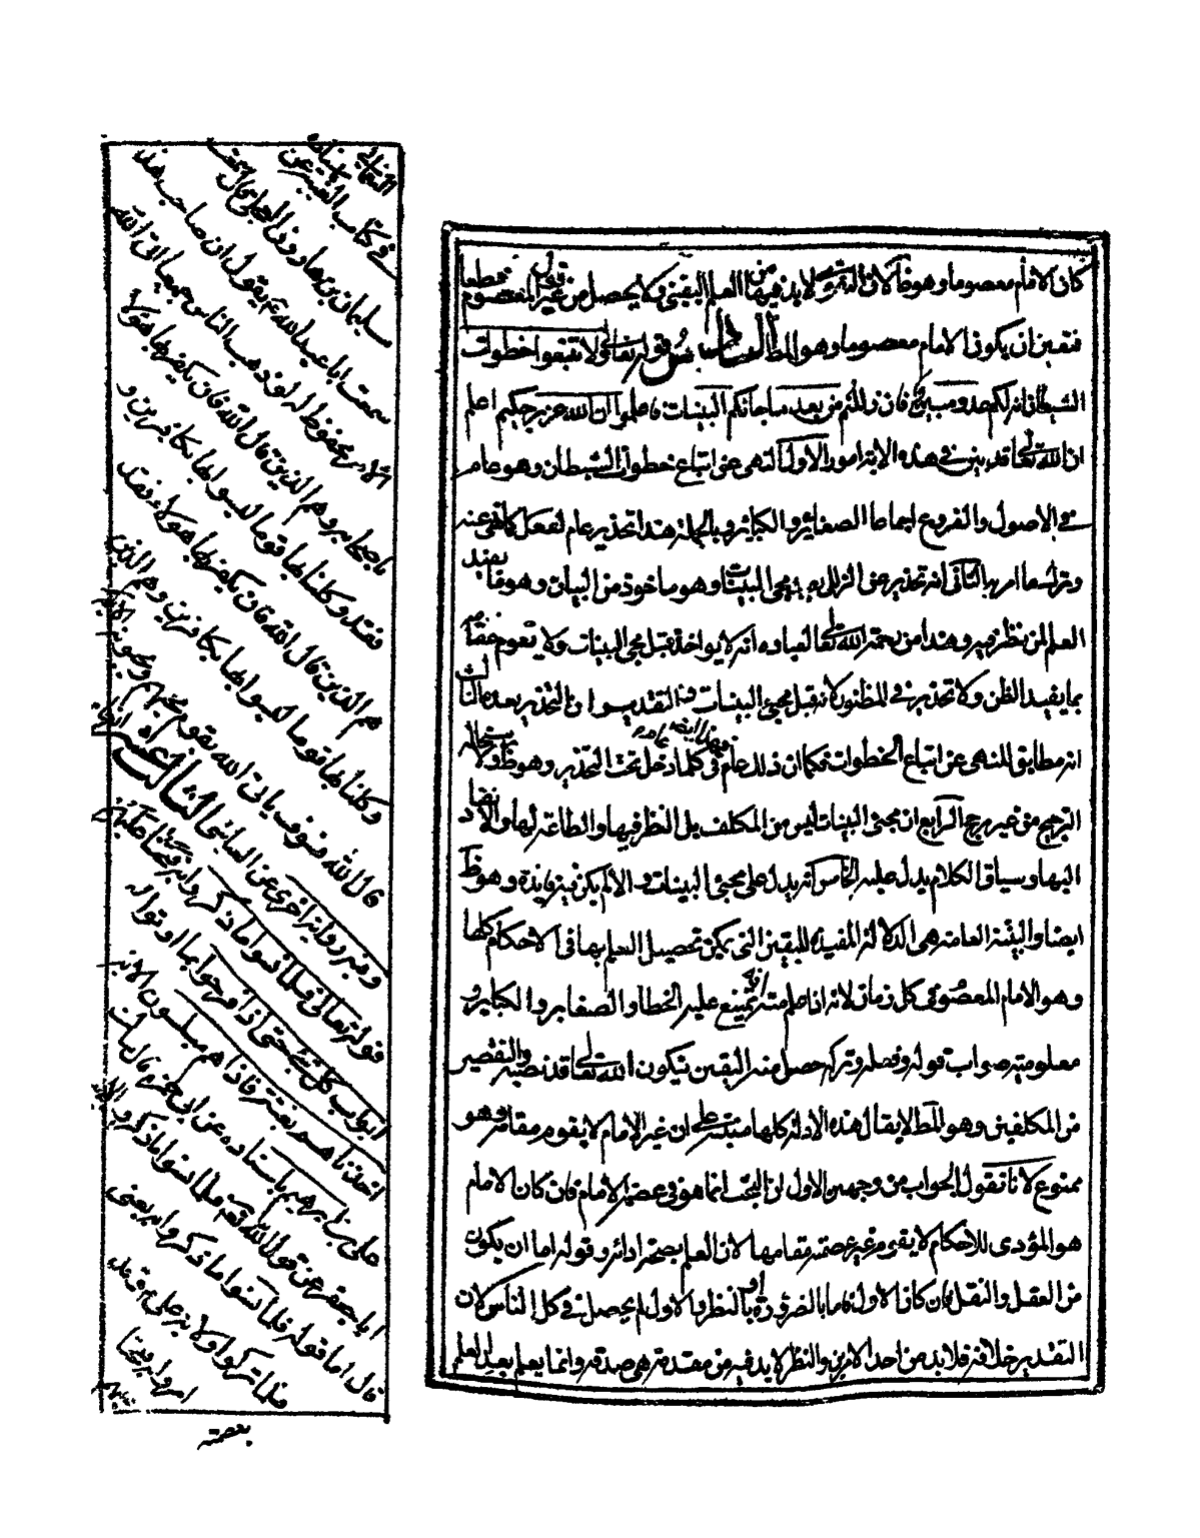 كان الامام معصوما وهو ظ لان التقوى لابد فيها من العلم اليقيني ولا يحصل من قول غير المعصوم قطعا
فتعين ان يكون الامام معصوما وهو المط السادس قوله تعالى ولا تتبعوا خطوات
الشيطان انه لكم عدو مبين فان زللتم من بعد ما جائتكم البينات فاعلموا ان الله عزيز حكيم اعلم
ان الله تعالى قد بين في هذه الاية امورا الاول النهي عن اتباع خطوات الشيطان وهو عام
في الاصول والفروع اجماعا الصغائر والكبائر وبالجملة هذا تحذير عام لفعل كلما نهى عنه
وترك ما امر به الثاني انه تحذير عن الزلل بعد مجئ البينات وهو ماخوذ من البيان وهو ما يفيد
العلم لمن نظر فيه وهذا من رحمة الله تعالى لعباده انه لا يواخذ قبل مجئ البينات ولا يقوم مقامه
بما يفيد الظن ولا تحذير في المظنون لانه قبل مجئ البينات والتقدير ان التحذير بعده الثالث
انه مطابق للنهي عن اتباع الخطوات فكما ان ذلك عام في كلما دخل تحت التحذير وهو ظ ولاستحالة
الترجيح من غير مرجح الرابع ان مجئ البينات ليس من المكلف بل النظر فيها والطاعة لها والانقياد
اليها وسياق الكلام يدل عليه الخامس انه يدل على مجئ البينات والا لم يكن فيه فايدة وهو ظ
ايضا والبينة العامة هي الدلالة المفيدة لليقين التي يمكن تحصيل العلم بها في الاحكام كلها
وهو الامام المعصوم في كل زمان لانه اذا علم منه انه يمتنع عليه الخطا والصغاير والكباير و
معلومية صواب قوله وفعله وتركه حصل منه اليقين فيكون الله تعالى قد نصبه والتقصير
من المكلفين وهو المط لا يقال هذه الادلة كلها مبتنية على ان غير الامام لا يقوم مقامه وهو
ممنوع لانا نقول الجواب من وجهين الاول ان البحث انما هو في عصمة الامام فان كان الامام
هو المؤدى للاحكام لا يقوم غير عصمته مقامها لان العلم بصحة ادائه وقوله اما ان يكون
من العقل والنقل فان كان الاول فاما بالضرورة او بالنظر والاول لم يحصل في كل الناس لان
التقدير خلافه فلابد من احد الامرين والنظر لابد فيه من مقدمة هي صدقه وانما يعلم بعد العلم
بعصمته
في كتاب الغيبة عن
سليمان بن هارون العجلي قال سمعت
ابا عبد الله ع يقول ان صاحب هذا
الامر محفوظ له لو ذهب الناس جميعا اتى الله
باصحابه وهم الذين قال الله فان يكفر بها هؤلاء
فقد وكلنا بها قوما ليسوا بها بكافرين و
هم الذين قال الله فان يكفر بها هؤلاء فقد
وكلنا بها قوما ليسوا بها بكافرين وهم الذين
قال الله فسوف ياتي الله بقوم يحبهم ويحبونه
وفيه رواية اخرى عن العياشي الثالث عشر
قوله تعالى فلما نسوا ما ذكروا به فتحنا عليهم
ابواب كل شئ حتى اذا فرحوا بما اوتوا
اخذناهم بغتة فاذا هم مبلسون
علي بن ابرهيم باسناده عن ابي حمزة قال سالت
ابا جعفر عن قول الله عز فلما نسوا ما ذكروا
قال اما قوله فلما نسوا ما ذكروا به يعني
فلما تركوا ولاية علي ع وقد
امروا بها